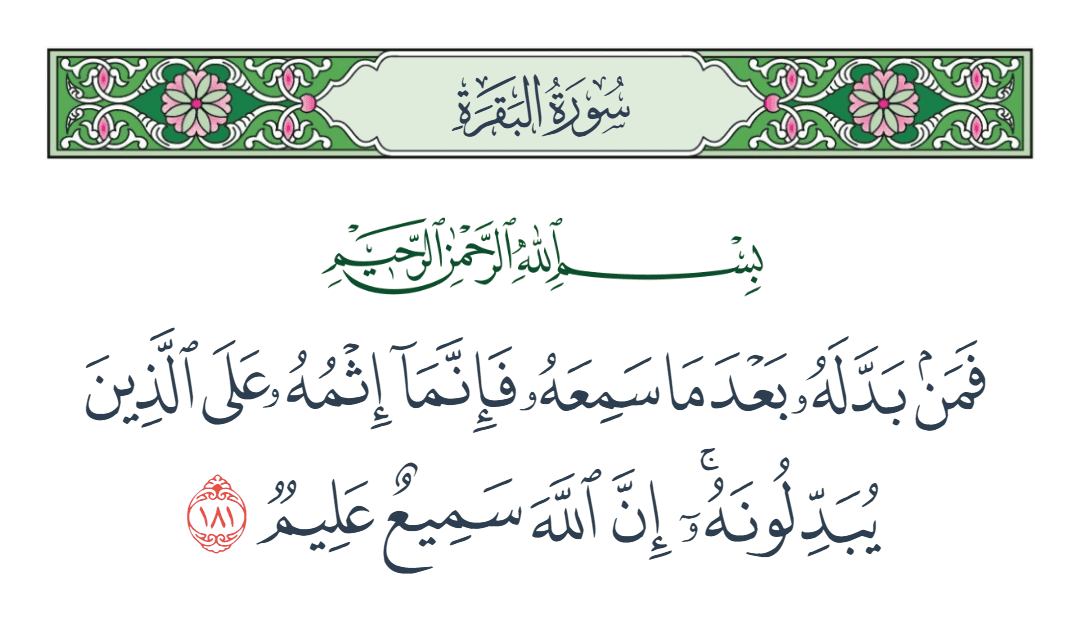 سُورَةُ البَقَرَةِ
بِسْمِ ٱللَّهِ ٱلرَّحْمَٰنِ ٱلرَّحِيمِ
فَمَنۢ بَدَّلَهُۥ بَعْدَمَا سَمِعَهُۥ فَإِنَّمَآ إِثْمُهُۥ عَلَى ٱلَّذِينَ
يُبَدِّلُونَهُۥٓ ۚ إِنَّ ٱللَّهَ سَمِيعٌ عَلِيمٌ ١٨١